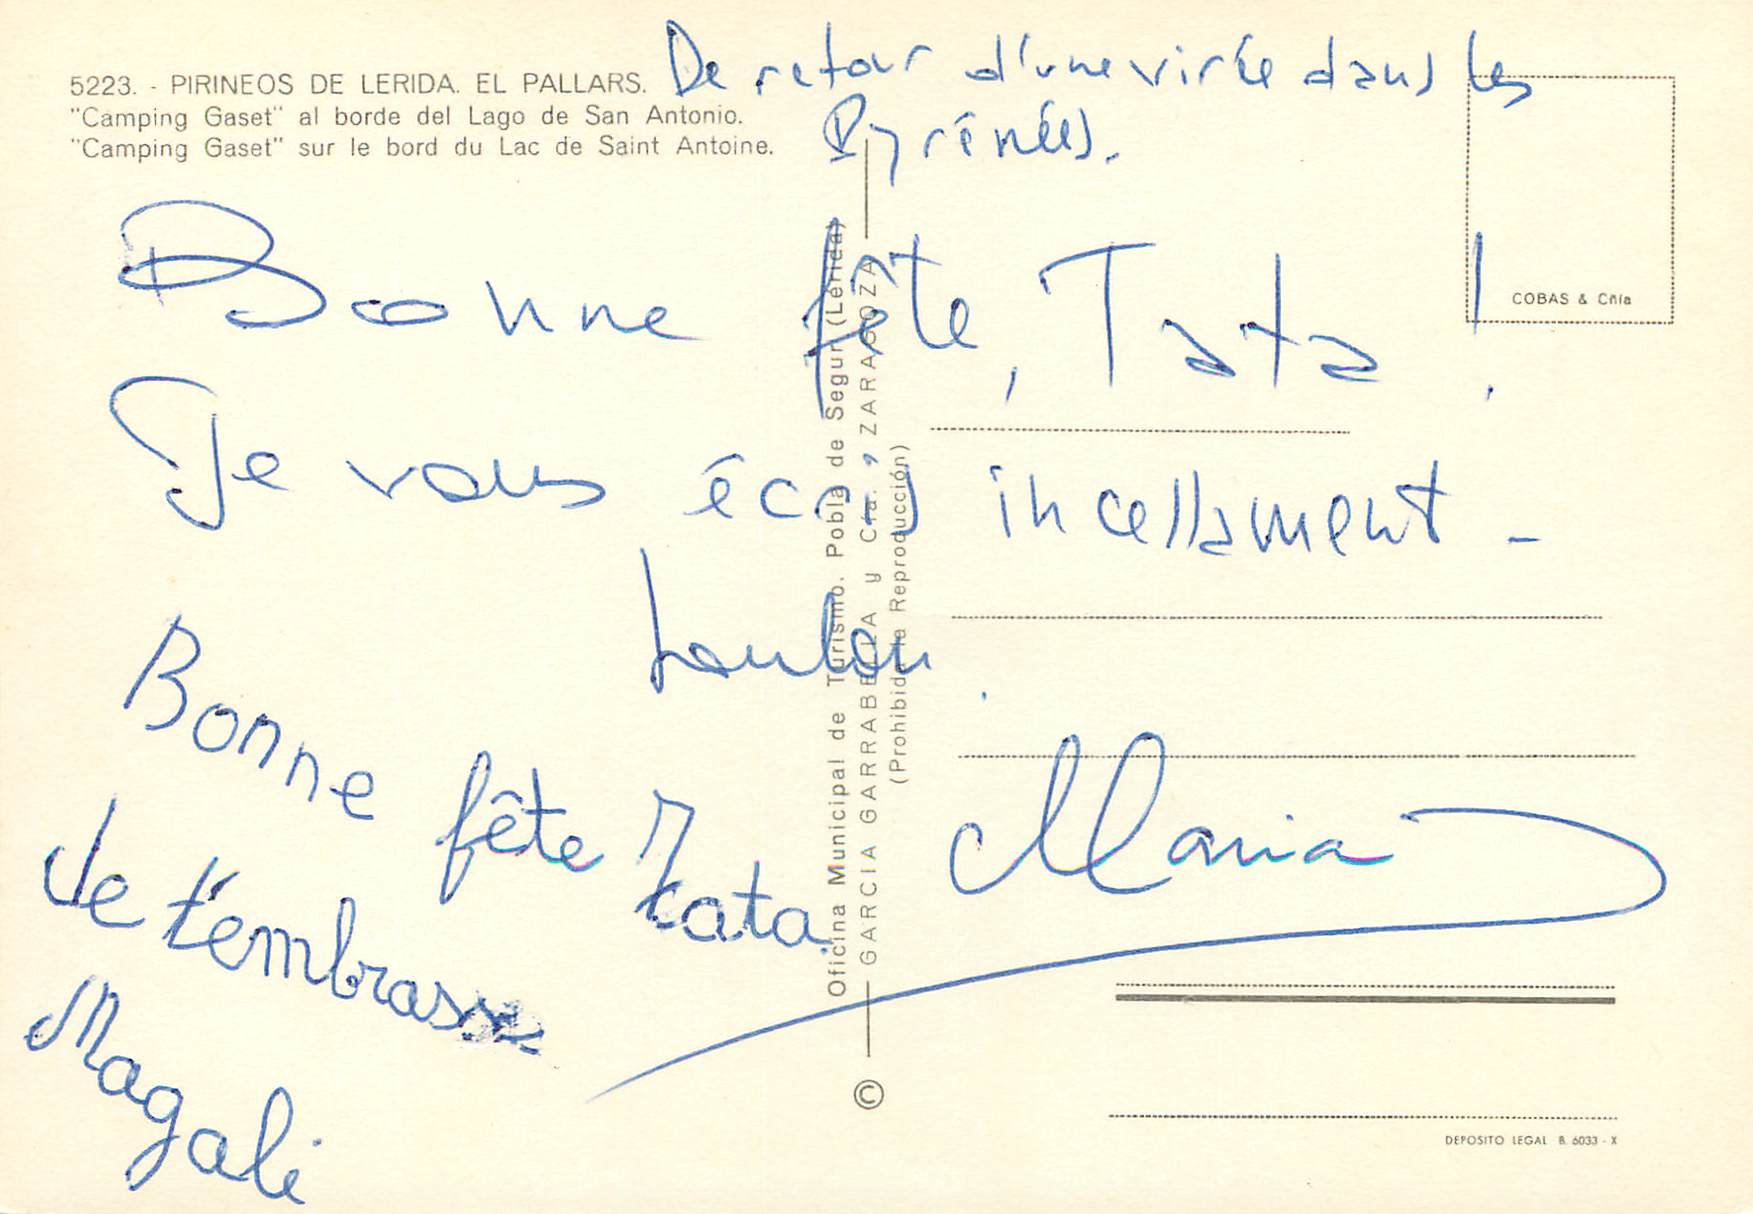 De retour d'une virée dans les
Pyrénées.
5223. - PIRINEOS DE LERIDA. EL PALLARS.
"Camping Gaset" al borde del Lago de San Antonio.
"Camping Gaset" sur le bord du Lac de Saint Antoine.
COBAS & Cñía
Bonne fête, Tata !
Je vous écris incessamment -
Loulou.
Bonne fête Tata
Je t'embrasse
Magali
Maria
Oficina Municipal de Turismo. Pobla de Segur (Lérida)
GARCIA GARRABELLA y Cía. ZARAGOZA
(Prohibida la Reproducción)
©
DEPOSITO LEGAL B. 6033 - X